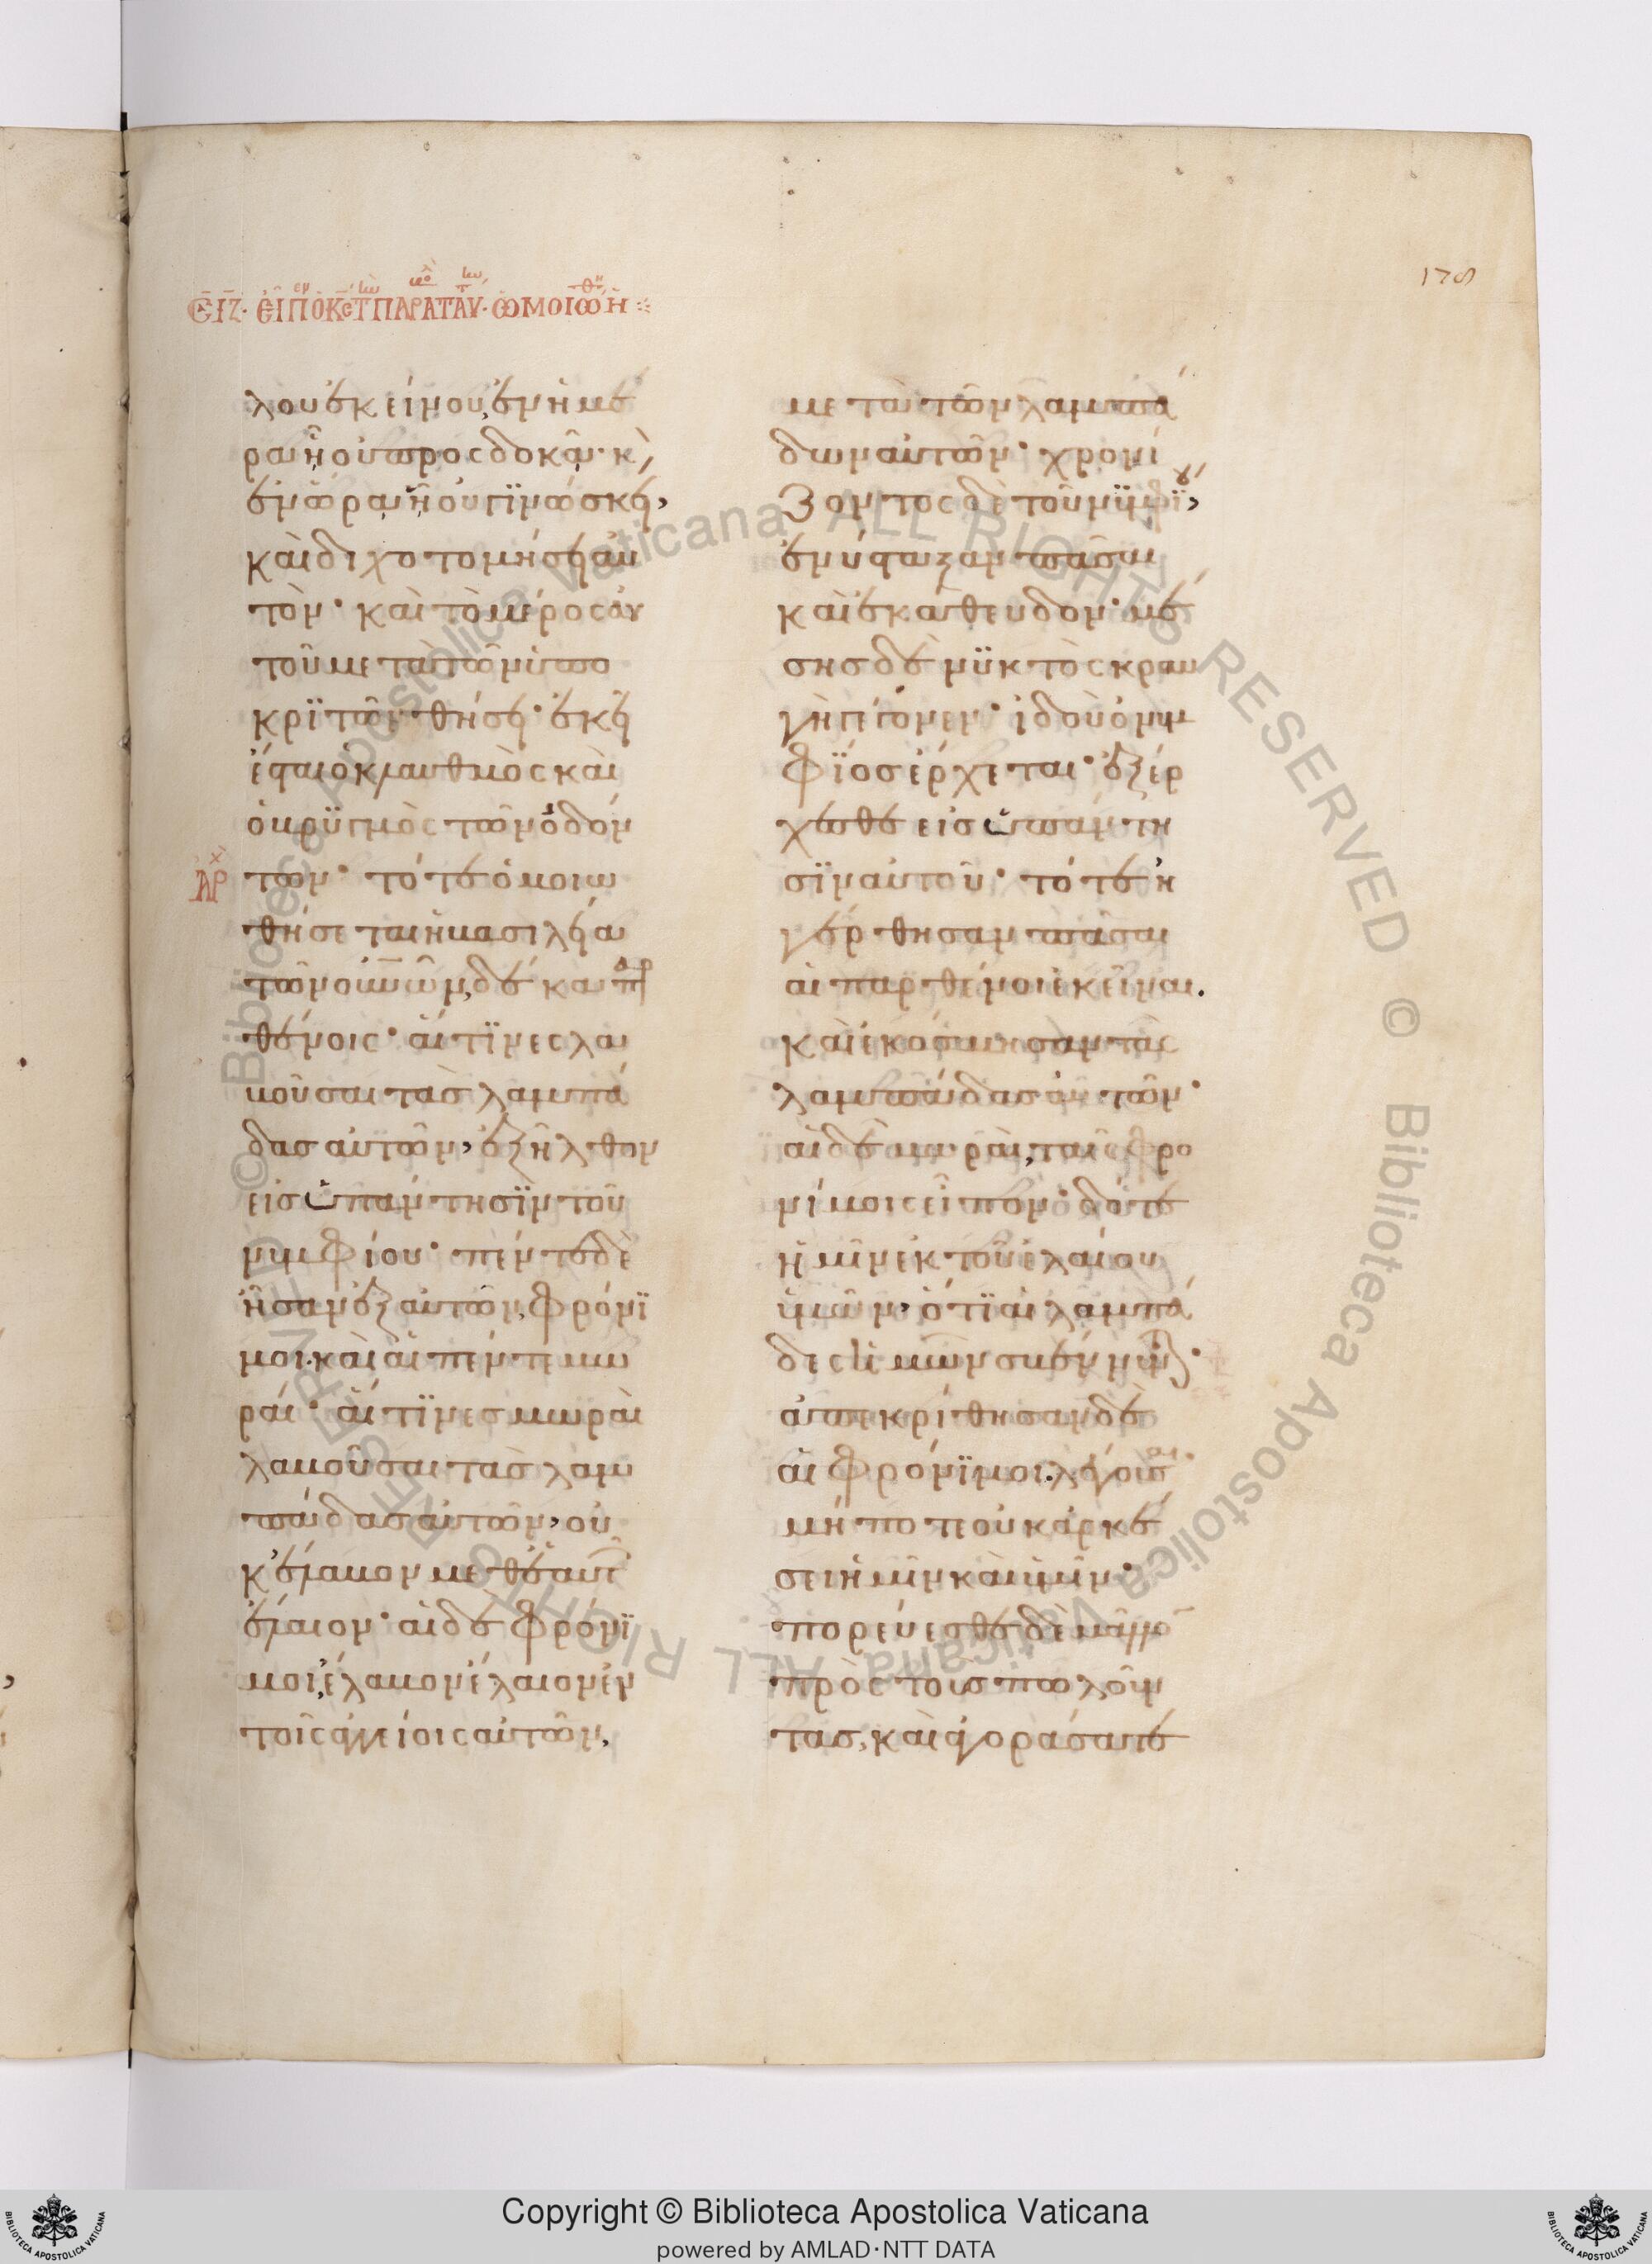 178
λου ἐκείνου, ἐν ἡμέ
ρᾳ ᾗ οὐ προσδοκᾷ· κ(αὶ)
ἐν ὥρᾳ ᾗ οὐ γϊνώσκει,
καὶ διχοτομήσει αὐ
τὸν· καὶ τὸ μέρος αὐ
τοῦ μετὰ τῶν ὑπο
κρϊτῶν θήσει· ἐκεῖ
ἔσται ὁ κλαυθμὸς καὶ
ὁ βρϋγμὸς τῶν ὀδόν
των· τότε ὁμοιω
θήσεται ἡ βασιλεία
τῶν οὐνῶν, δέκα παρ
θένοις· αἵτϊνες λα
βοῦσαι τὰσ λαμπά
δασ αὐτῶν, ἐξῆλθον
εἰσ ἀπάντησϊν τοῦ
νυμφίου· πέντε δὲ
ἦσαν ἐξ αὐτῶν, φρόνϊ
μοι. καὶ αἱ πέντε μω
ραί· αἵτϊνεσ μωραὶ
λαβοῦσαι τὰσ λαμ
πάδασ αὐτῶν, οὐ
κ ἔλαβον μεθ ἑαυτ(ῶν)
ἔλαιον· αἱ δὲ φρόνϊ
μοι, ἔλαβον ἔλαιον ἐν
τοῖς ἀγγείοις αὐτῶν,
μετὰ τῶν λαμπά
δων αὐτῶν· χρονί
ζοντος δὲ τοῦ νϋμφϊου,
ἐνύσταξαν πᾶσαι
καὶ ἐκάθευδον· μέ
σησ δὲ νϋκτὸς κραυ
γὴ γέγονεν· ἰδοὺ ὁ νυμ
φϊόσ ἔρχεται· ἐξέρ
χεσθε εἰσ ἀπάντη
σϊν αὐτοῦ· τότε ἠ
γέρθησαν πᾶσαι
αἱ παρθένοι ἐκεῖναι.
καὶ ἐκόσμησαν τὰς
λαμπάδασ αὐτῶν·
αἱ δὲ μωραὶ, ταῖς φρο
νίμοις εἶπον· δότε
ἡμῖν ἐκ τοῦ ἐλαίου
ὑμῶν, ὅτϊ αἱ λαμπά
δες ἡμῶν σβένν(υν)τ(αι)·
ἀπεκρίθησαν δὲ
αἱ φρόνϊμοι. λέγουσαι·
μήποτε οὐκ ἀρκέ
σει ἡμῖν καὶ ὑμῖν·
πορεύεσθε δὲ μᾶλλο(ν)
πρὸς τοὺσ πωλοῦν
τασ, καὶ ἀγοράσατε